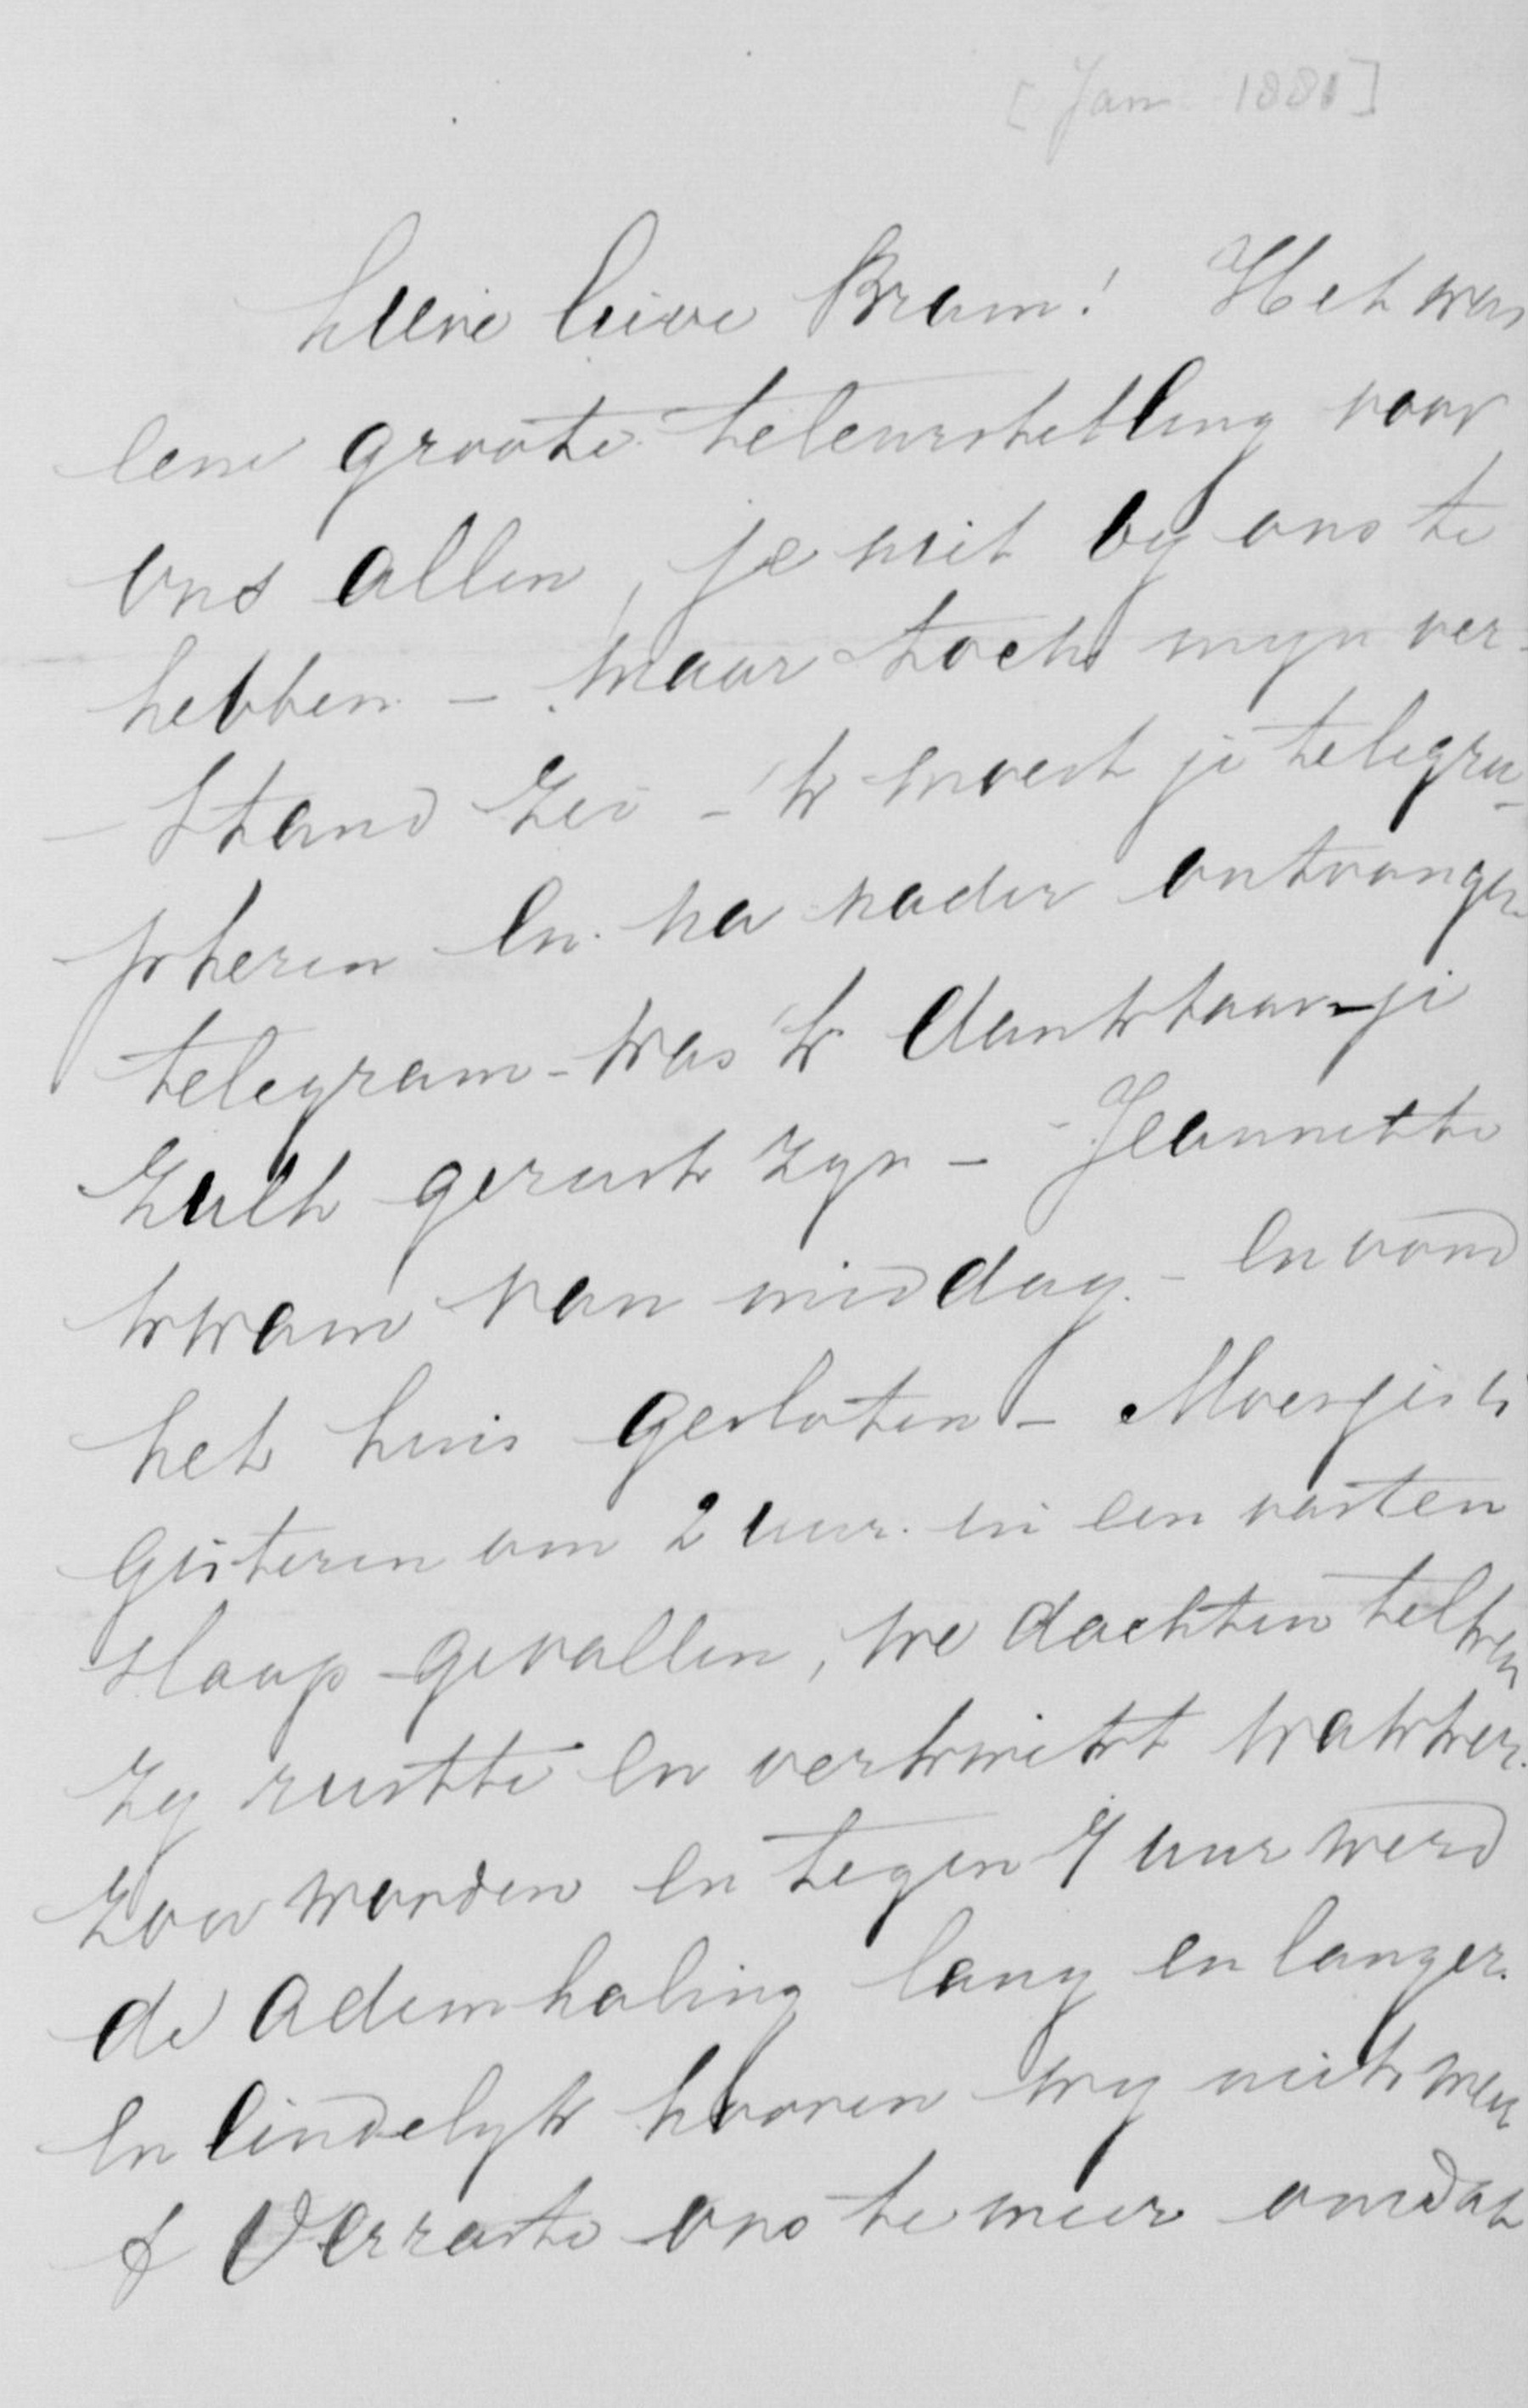 [Jan 1881]
lieve Bram! Het was
een groote teleurstelling voor
ons allen, je niet by ons te
hebben - maar toch myn ver-
stand zei - 'k moest je telegra-
pheren en na nader ontvangen
telegram - was 'k dankbaar - je
zult gerust zyn - Jeannette
kwam van middag - en vond
het huis gesloten - Moesje is
gisteren om 2 uur in een vasten
slaap gevallen, we dachten telkens
zy rustte en verkwikt wakker
zou worden en tegen 7 uur werd
de ademhaling lang en langer
en eindelyk hooren wy niets meer
't Verraste ons te meer omdat